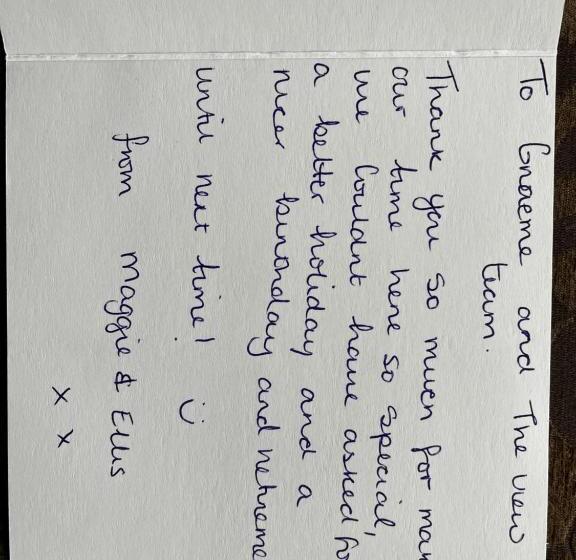 To Graeme and The View
team.
Thank you so much for
our time here so special,
we couldnt have asked
a better holiday and a
nicer birthday and
until next time! :)
from Maggie & Ellis
x x